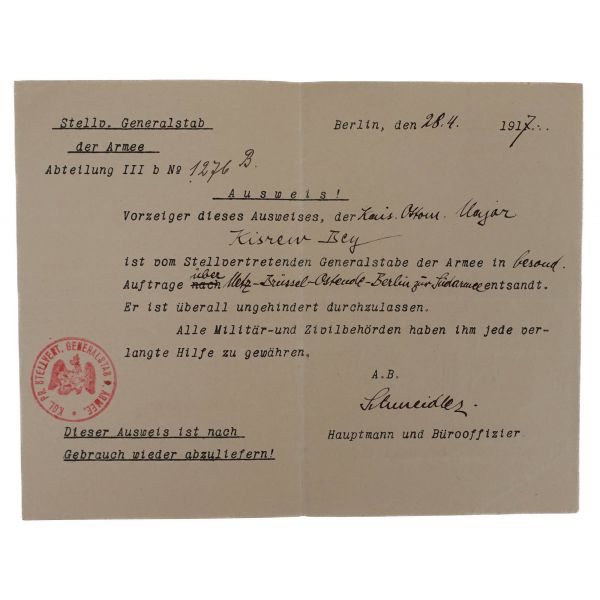 Stellv. Generalstab
der Armee
Abteilung III b № 1276 B.
Berlin, den 28.4. 1917...
Ausweis!
Vorzeiger dieses Ausweises, der Kais. Ottom. Major
Kisrew Bey
ist vom Stellvertretenden Generalstabe der Armee in besond.
Auftrage nach über Metz-Brüssel-Ostende-Berlin zur Südarmee entsandt.
Er ist überall ungehindert durchzulassen.
Alle Militär-und Zivilbehörden haben ihm jede ver-
langte Hilfe zu gewähren.
KGL. PR. STELLVERT. GENERALSTAB * ARMEE. *
A.B.
Schneidler.
Hauptmann und Bürooffizier
Dieser Ausweis ist nach
Gebrauch wieder abzuliefern!